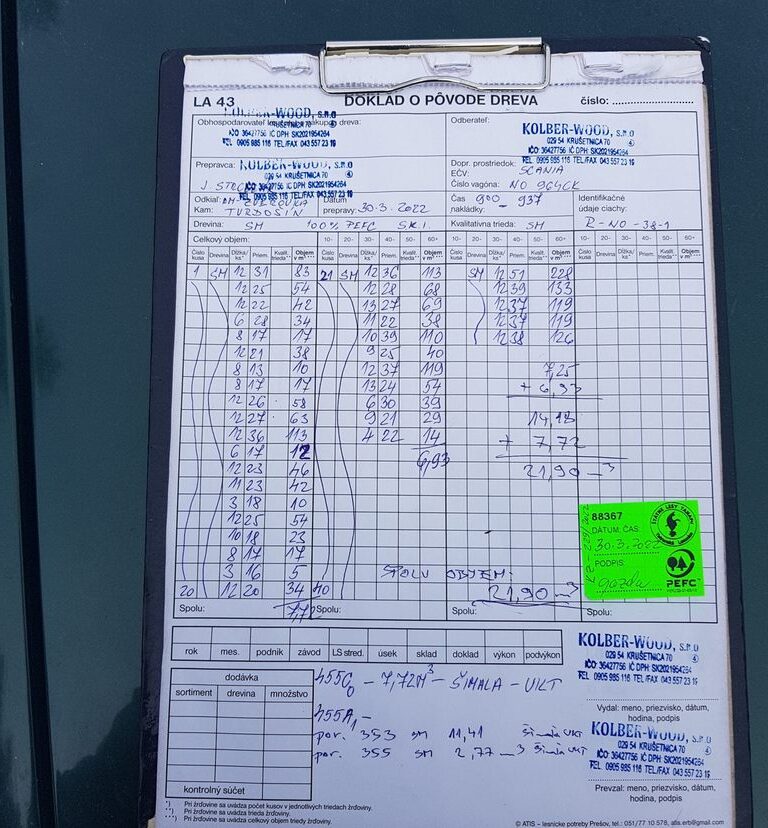 LA 43 DOKLAD O PÔVODE DREVA číslo: ........................
KOLBER-WOOD, s.r.o
KRUŠETNICA 70
IČO 36427756 IČ DPH SK2021954264
TEL 0905 985 116 TEL/FAX 043 557 23 19
Odberateľ:
KOLBER-WOOD, s.r.o
029 54 KRUŠETNICA 70
IČO: 36427756 IČ DPH SK2021954264
TEL 0905 985 116 TEL/FAX 043 557 23 19
Prepravca: KOLBER-WOOD, s.r.o
029 54 KRUŠETNICA 70
IČO 36427756 IČ DPH SK2021954264
TEL 0905 985 116 TEL/FAX 043 557 23 19
Dopr. prostriedok: SCANIA
EČV:
Číslo vagóna: NO 964CK
Odkiaľ:
Kam: TVRDOŠÍN
Dátum prepravy: 30.3.2022
Čas nakládky: 900 - 937
Identifikačné údaje ciachy:
R-NO-38-1
Drevina: SM 100% PEFC SK1 Kvalitatívna trieda: SM
Celkový objem: 10- 20- 30- 40- 50- 60+ 10- 20- 30- 40- 50- 60+ 10- 20- 30- 40- 50- 60+
Číslo kusa Drevina Dĺžka/ks* Priem. Kvalit. trieda** Objem v m³***
1 SM 12 31 83 21 SM 12 36 113 SM 12 51 228
12 25 54 12 28 68 12 39 133
12 22 42 13 27 69 12 37 119
6 28 34 11 22 38 12 37 119
8 17 17 10 39 110 12 38 126
12 21 38 9 25 40
8 13 10 12 37 119 7,25
8 17 17 13 24 54 + 6,93
12 26 58 6 30 39
12 27 63 9 21 29 14,18
12 36 113 4 22 14 + 7,72
6 17 12 6,93
12 23 46 21,90 m3
11 23 42
3 18 10
12 25 54
10 18 23
8 17 17
3 16 5 SPOLU OBJEM:
20 12 20 34 40 21,90 m3
Spolu: 7,72 Spolu: Spolu: Spolu:
88367
DÁTUM: ČAS:
30.3.2022
PODPIS:
PEFC
rok mes. podnik závod LS stred. úsek sklad doklad výkon podvýkon
dodávka
sortiment drevina množstvo
kontrolný súčet
455C0 - 7,72M3 - ŠIMALA - UKT
455A1 -
por. 353 SM 11,41
por. 355 SM 2,77 m3
KOLBER-WOOD, s.r.o
029 54 KRUŠETNICA 70
IČO: 36427756 IČ DPH SK2021954264
TEL 0905 985 116 TEL/FAX 043 557 23 19
Vydal: meno, priezvisko, dátum,
hodina, podpis
KOLBER-WOOD, s.r.o
029 54 KRUŠETNICA 70
IČO: 36427756 IČ DPH SK2021954264
TEL 0905 985 116 TEL/FAX 043 557 23 19
Prevzal: meno, priezvisko, dátum,
hodina, podpis
*) Pri žrďovine sa uvádza počet kusov v jednotlivých triedach žrďoviny.
**) Pri žrďovine sa uvádza trieda žrďoviny.
***) Pri žrďovine sa uvádza celkový objem triedy žrďoviny.
© ATIS – lesnícke potreby Prešov, tel.: 051/77 10 578, atis.erb@gmail.com